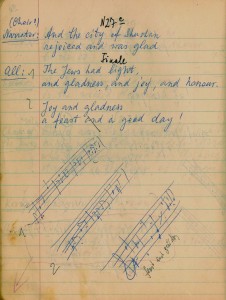 N27a
(Chorus)
Narrator: And the city of Shushan
rejoiced and was glad
Finale
All: 1 The Jews had light,
and gladness, and joy, and honour.
2 Joy and gladness
a feast and a good day!
1
2